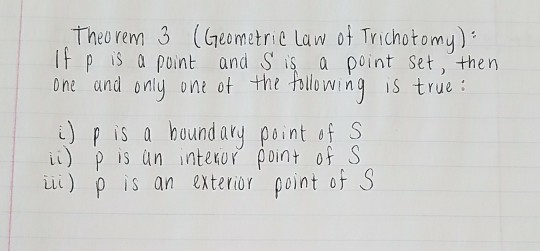 Theorem 3 (Geometric Law of Trichotomy):
If p is a point and S is a point set, then
one and only one of the following is true:
i) p is a boundary point of S
ii) p is an interior point of S
iii) p is an exterior point of S